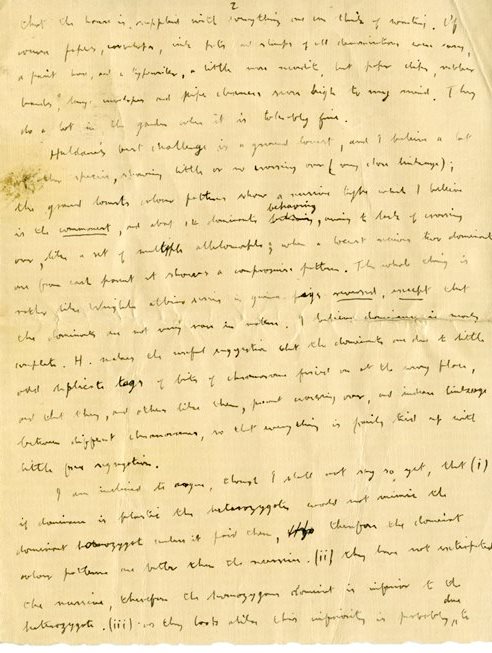 2
that the house is supplied with everything one can think of wanting. Of
course paper, envelopes, ink pots and stamps of all denominations come easy,
a paint box, and a typewriter, a little more recondite, but paper clips, rubber
bands, large envelopes and pipe cleaners seem high to my mind. They
do a lot in the garden when it is tolerably fine.
Haldane's best challenge is a ground locust, and I believe a lot
of other species, showing little or no crossing over (very close linkage);
the ground locusts colour patterns show a recessive type which I believe
is the commonest, and about 14 dominants behaving, owing to lack of crossing
over, like a set of multiple allelomorphs; when a locust receives two dominants
one from each parent it shows a compromise pattern. The whole thing is
rather like Wright's albino series in guinea pigs reversed, except that
the dominants are not very rare in nature. I believe dominance is nearly
complete. H. makes the useful suggestion that the dominants are due to little
odd duplicate tags of bits of chromosome joined on at the wrong place,
and that they, and others like them, prevent crossing over, and induce linkage
between different chromosomes, so that everything is fairly tied up with
little free segregation.
I am inclined to argue, though I shall not say so yet, that (i)
if dominance is plastic the heterozygote would not mimic the
dominant homozygote unless it paid them, therefore the dominant
colour patterns are better than the recessive. (ii) they have not extirpated
the recessive, therefore the homozygous dominant is inferior to the
heterozygote. (iii) as they look alike this inferiority is probably due to